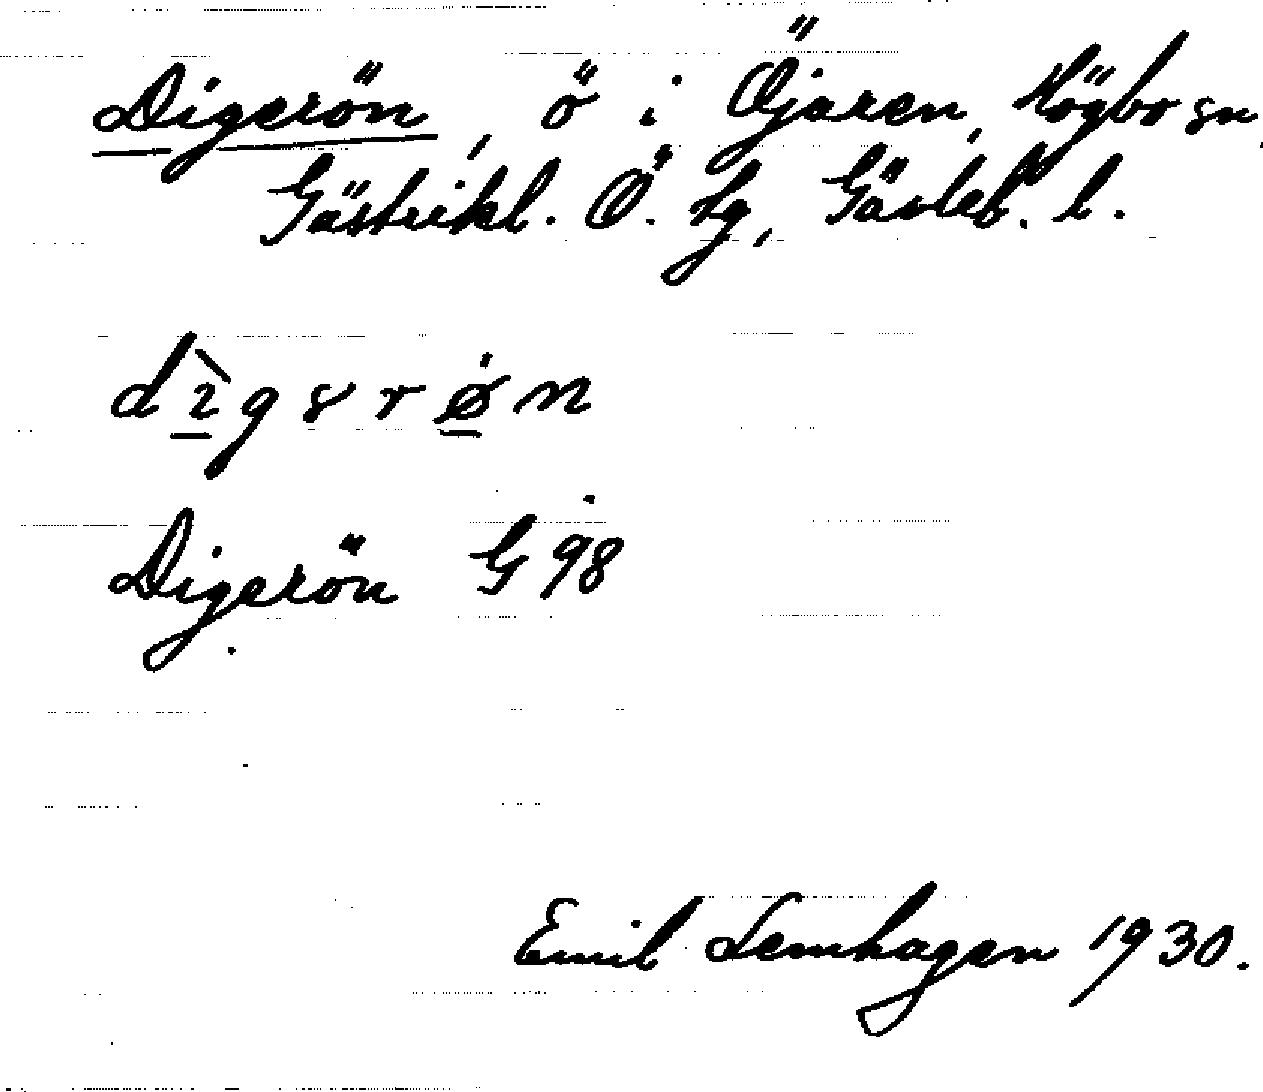 Digerön, ö i Öjaren, Högbo sn,
Gästrikl. Ö. tg, Gävleb. l.
dìgərøn
Digerön G 98
Emil Lemhagen 1930.